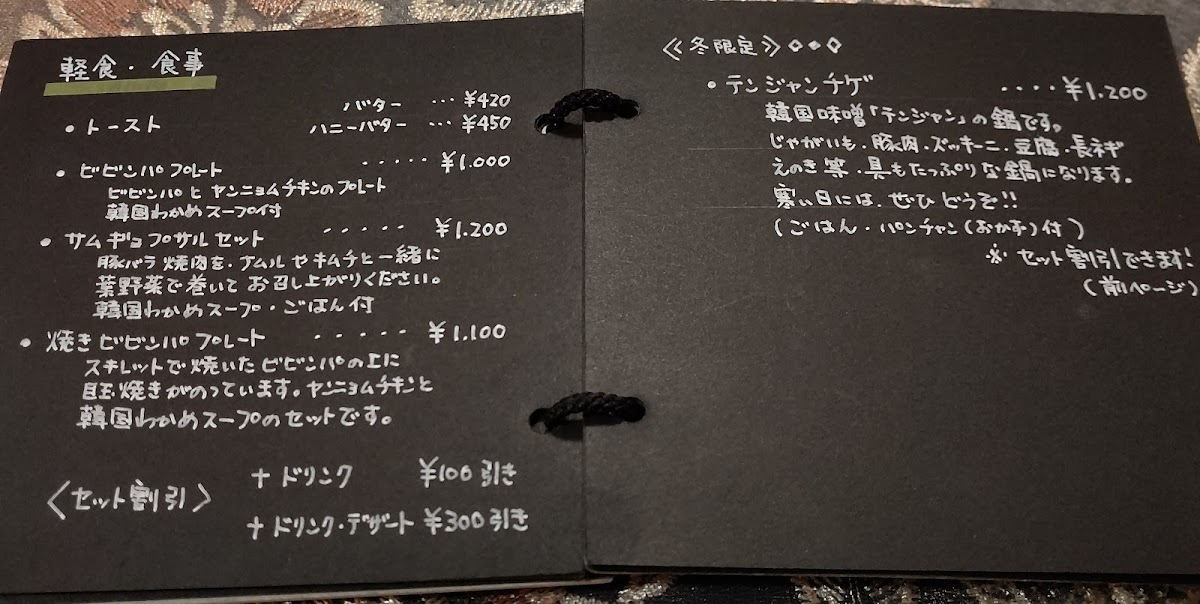 軽食・食事
バター ・・・ ¥420
・トースト ハニーバター ・・・ ¥450
・ビビンバプレート ・・・・・ ¥1.000
ビビンバとヤンニョムチキンのプレート
韓国わかめスープ付
・サムギョプサルセット ・・・・・ ¥1.200
豚バラ焼肉を、ナムルやキムチと一緒に
葉野菜で巻いてお召し上がりください。
韓国わかめスープ・ごはん付
・焼きビビンバプレート ・・・・・ ¥1.100
スキレットで焼いたビビンバの上に
目玉焼きがのっています。ヤンニョムチキンと
韓国わかめスープのセットです。
〈セット割引〉
+ドリンク ¥100引き
+ドリンク・デザート ¥300引き
≪冬限定≫◇◇◇
・テンジャンチゲ ・・・・¥1.200
韓国味噌「テンジャン」の鍋です。
じゃがいも・豚肉・ズッキーニ・豆腐・長ネギ
えのき等・具もたっぷりな鍋になります。
寒い日には、ぜひどうぞ!!
(ごはん・パンチャン(おかず)付)
※セット割引できます!
(前ページ)